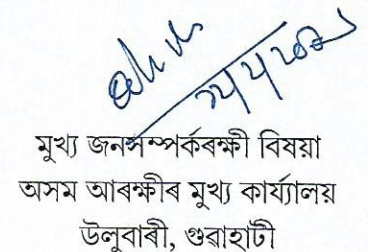 মুখ্য জনসম্পৰ্কৰক্ষী বিষয়া
অসম আৰক্ষীৰ মুখ্য কাৰ্য্যালয়
উলুবাৰী, গুৱাহাটী